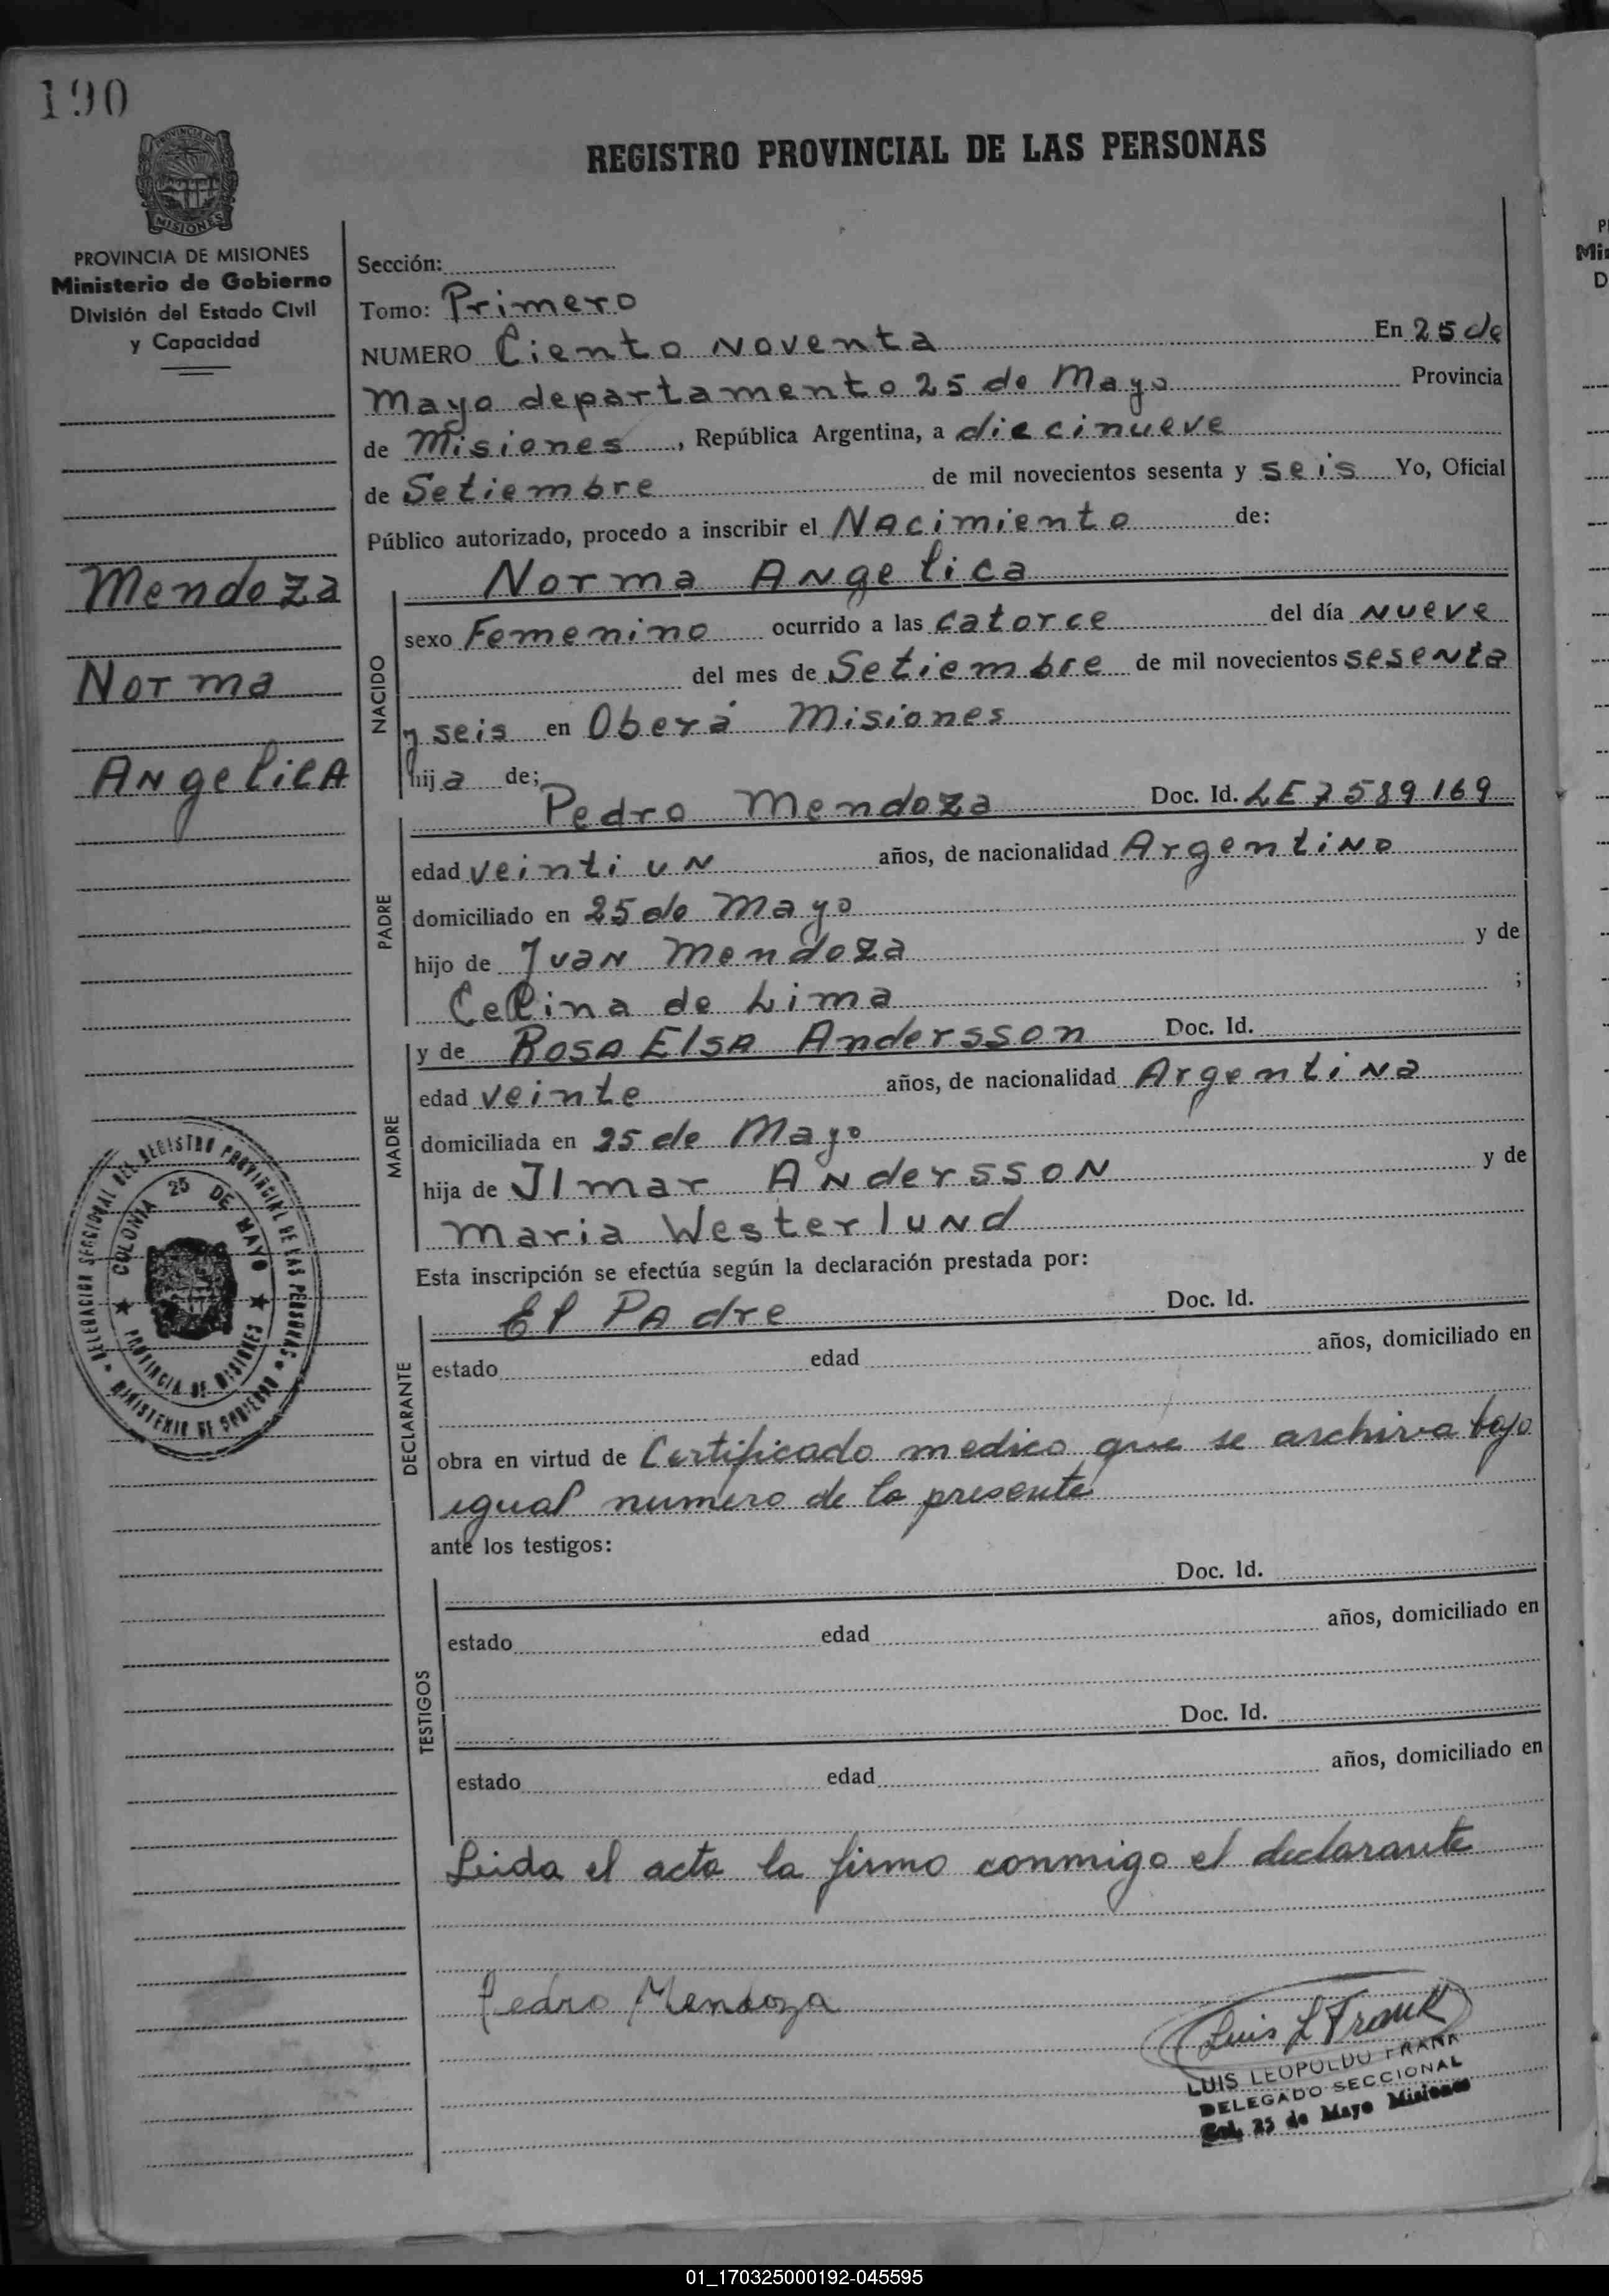 190
REGISTRO PROVINCIAL DE LAS PERSONAS
PROVINCIA DE MISIONES
Ministerio de Gobierno
División del Estado Civil
y Capacidad
Mendoza
Norma
Angelica
Sección:
Tomo: Primero
NUMERO Ciento Noventa En 25 de
Mayo departamento 25 de Mayo Provincia
de Misiones, República Argentina, a diecinueve
de Setiembre de mil novecientos sesenta y seis Yo, Oficial
Público autorizado, procedo a inscribir el Nacimiento de:
Norma Angelica
NACIDO
sexo Femenino ocurrido a las catorce del día nueve
del mes de Setiembre de mil novecientos sesenta
y seis en Oberá Misiones
hija de;
Pedro Mendoza Doc. Id. LE 7589169
PADRE
edad veintiun años, de nacionalidad Argentino
domiciliado en 25 de Mayo
hijo de Juan Mendoza y de
Celina de Lima ;
y de Rosa Elsa Andersson Doc. Id.
MADRE
edad veinte años, de nacionalidad Argentina
domiciliada en 25 de Mayo
hija de Ilmar Andersson y de
Maria Westerlund
Esta inscripción se efectúa según la declaración prestada por:
El Padre Doc. Id.
DECLARANTE
estado edad años, domiciliado en
obra en virtud de Certificado medico que se archiva bajo
igual numero de la presente
ante los testigos:
Doc. Id.
TESTIGOS
estado edad años, domiciliado en
Doc. Id.
estado edad años, domiciliado en
Leida el acta la firmo conmigo el declarante
Pedro Mendoza
Luis L Frank
LUIS LEOPOLDO FRANK
DELEGADO SECCIONAL
Col. 25 de Mayo Misiones
DELEGACION SECCIONAL DEL REGISTRO PROVINCIAL DE LAS PERSONAS
MINISTERIO DE GOBIERNO
COLONIA 25 DE MAYO
PROVINCIA DE MISIONES
PROVINCIA DE
MISIONES
01_170325000192-045595